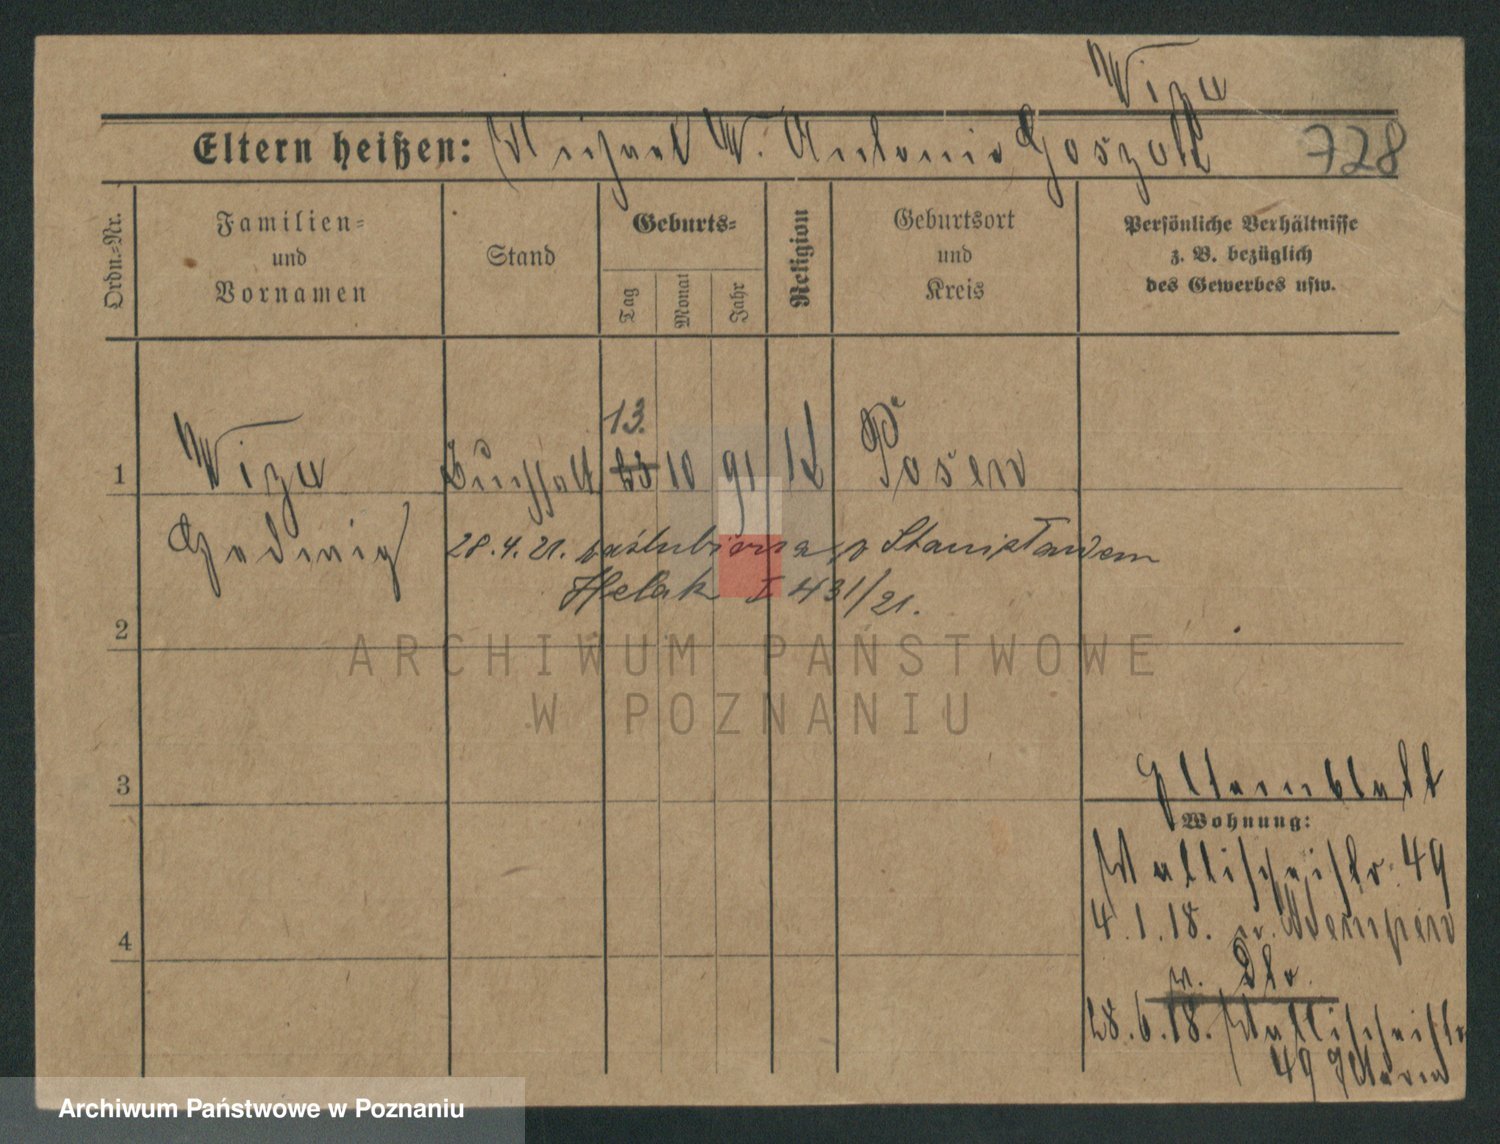 Wizu
Eltern heißen: Michael W. Antonie Goszak
728
Ordn.=Nr.
Familien=
und
Vornamen
Stand
Geburts=
Tag
Monat
Jahr
Religion
Geburtsort
und
Kreis
Persönliche Verhältnisse
z. B. bezüglich
des Gewerbes usw.
13.
1 Wizu Buchhalt 10 91 K Posen
Hedwig
28.4.21. zaślubiona z Stanisławem
Helak I 431/21.
2
ARCHIWUM PAŃSTWOWE
W POZNANIU
3
Elternblatt
Wohnung:
Wallischeistr. 49
4
4.1.18. n. Kempen
28.6.18. Wallischeistr
49 Eltern
Archiwum Państwowe w Poznaniu